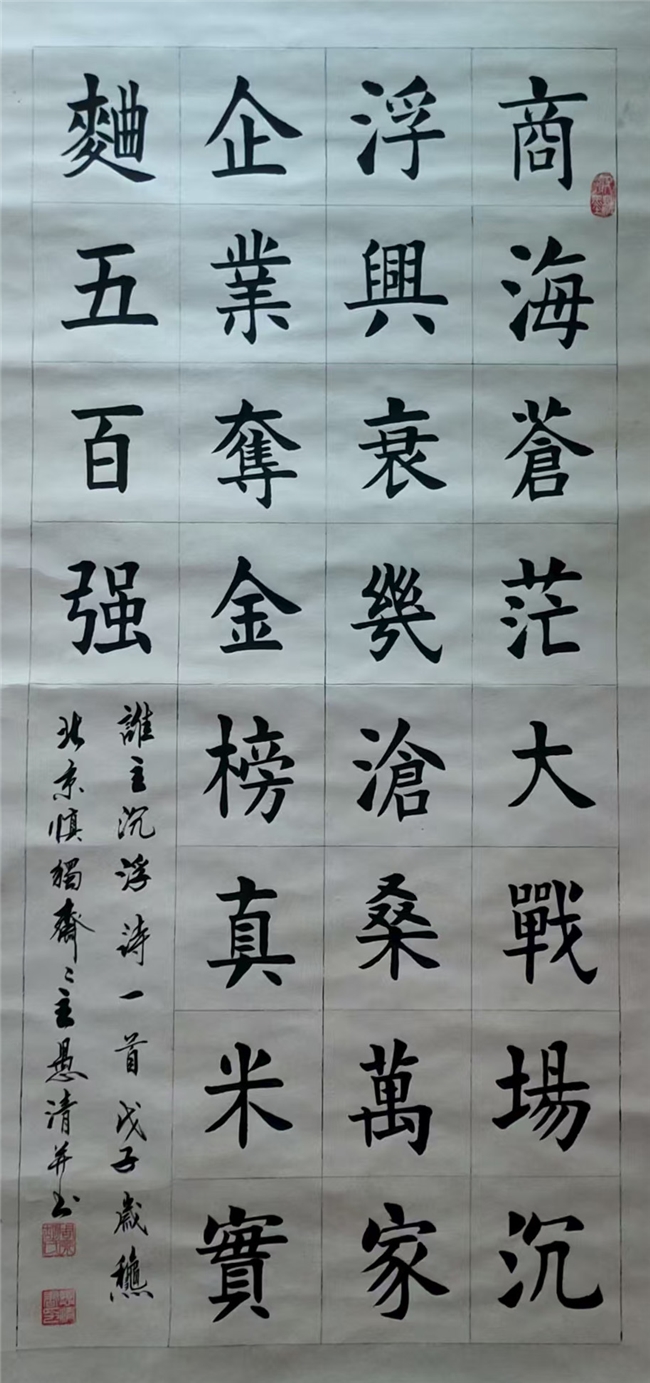 商海蒼茫大戰場沉
浮興衰幾滄桑萬家
企業奪金榜真米實
麯五百强
誰主沉浮詩一首戊子歲穐
北京慎獨齋〻主愚清并书